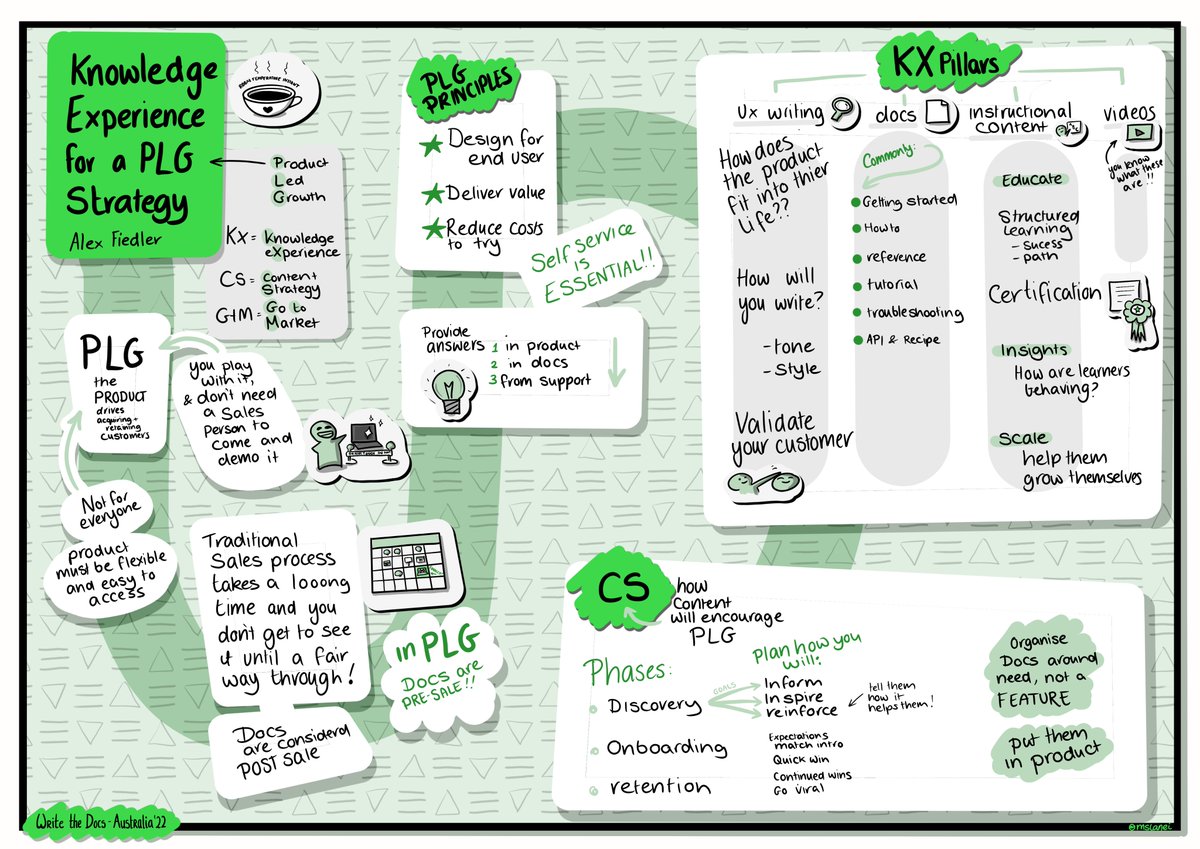 Knowledge
Experience
for a PLG
Strategy
Alex Fiedler
ROOM TEMPERATURE INSIGHT
Product
Led
Growth
KX = Knowledge
eXperience
CS = Content
Strategy
GTM = Go to
Market
PLG
the
PRODUCT
drives
acquiring +
retaining
customers
you play
with it,
& don't need
a Sales
Person to
come and
demo it
Not for
everyone
product
must be flexible
and easy to
access
Traditional
Sales process
takes a looong
time and you
don't get to see
it until a fair
way through!
Docs
are considered
POST SALE
in PLG
DOCS ARE
PRE-SALE!!
PLG
PRINCIPLES
Design for
end user
Deliver value
Reduce costs
to try
Self service
is
ESSENTIAL!!
Provide
answers
1 in product
2 in docs
3 from support
KX Pillars
Ux writing
How does
the product
fit into thier
Life??
How will
you write?
- tone
- Style
Validate
your customer
docs
Commonly:
Getting started
How to
reference
tutorial
troubleshooting
API & Recipe
instructional
content
Educate
Structured
Learning
- Sucess
- path
Certification
Insights
How are learners
behaving?
Scale
help them
grow themselves
videos
you know
what these
are!!
CS
how
content
will encourage
PLG
Phases:
Plan how you
will:
Discovery
GOALS
Inform
Inspire
reinforce
tell them
how it
helps them!
Onboarding
Expectations
match intro
Quick win
retention
Continued wins
Go Viral
Organise
Docs around
need, not a
FEATURE
put them
in product
Write the Docs - Australia '22
@mslanei